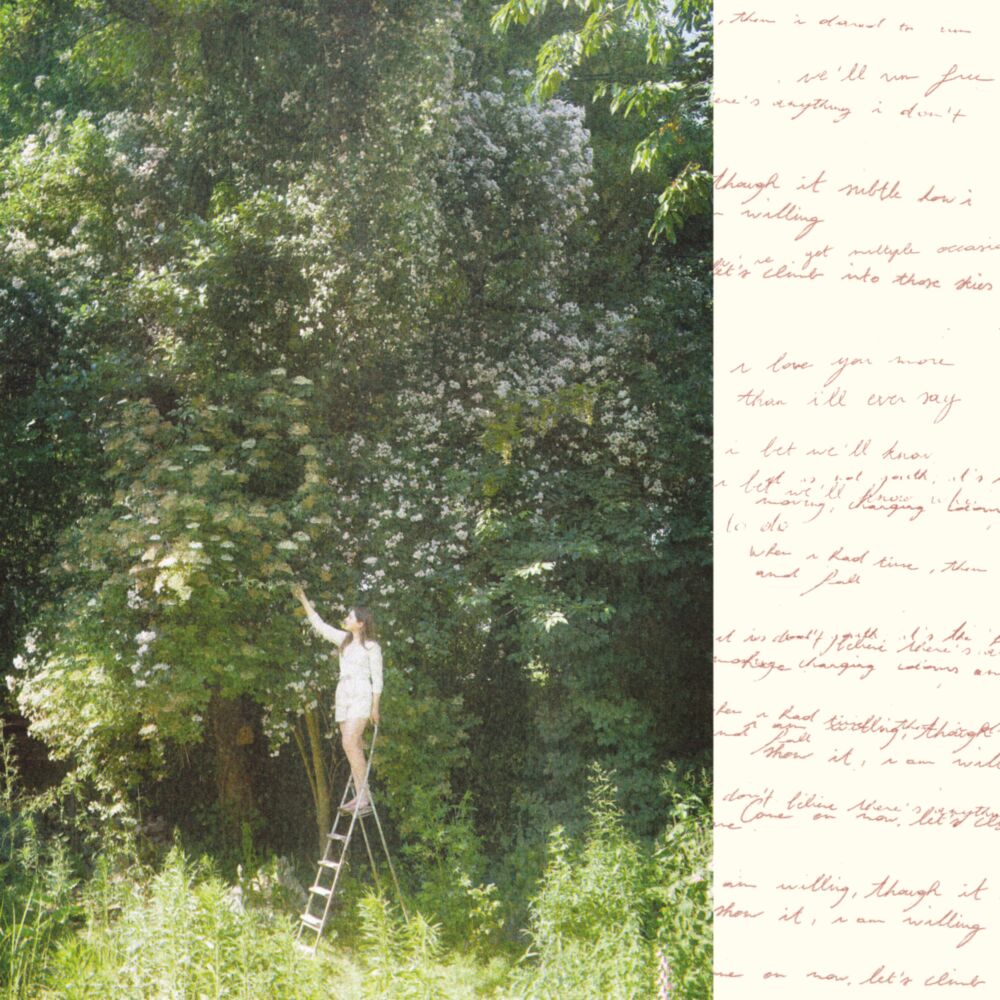 , then i dared to run
we'll run free
ere's anything i don't
though it subtle how i
willing
got multiple occasio
let's climb into those skies
i love you more
than i'll ever say
i bet we'll know
it is not youth, it's
i bet we'll know
moving, changing
to do
when i had time, then
and fall
it is not youth, it's the
don't believe there's
changing idioms an
when i had
i am willing, though
and fall
show it, i am will
don't believe there's anything
Come on now, let's cli
me
am willing, though it
show it, i am willing
me on now, let's climb